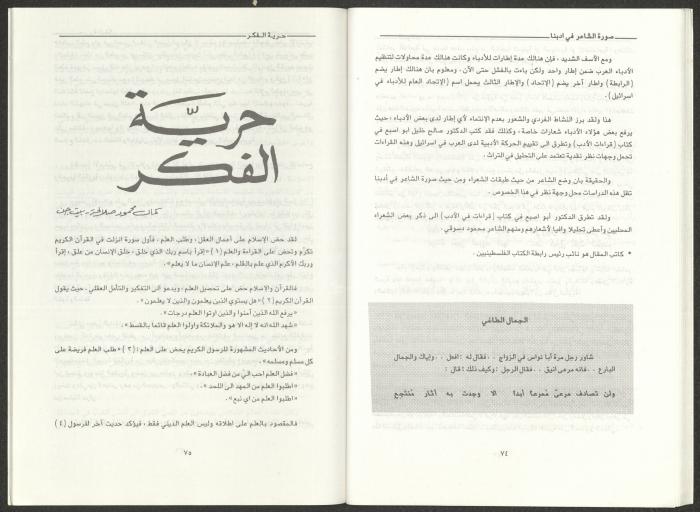 صورة الشاعر في ادبنا
ومع الأسف الشديد ، فإن هنالك عدة إطارات للأدباء وكانت هنالك عدة محاولات لتنظيم
الأدباء العرب ضمن إطار واحد ولكن باءت بالفشل حتى الآن . ومعلوم بان هنالك إطار يضم
(الرابطة) واطار آخر يضم (الإتحاد) والإطار الثالث يحمل اسم (الإتحاد العام للأدباء في
اسرائيل) .
هذا ولقد برز النشاط الفردي والشعور بعدم الإنتماء لأي إطار لدى بعض الأدباء ، حيث
يرفع بعض هؤلاء الأدباء شعارات خاصة ، وكذلك فقد كتب الدكتور صالح خليل ابو اصبع في
كتاب (قراءات الأدب) وتطرق الى تقييم الحركة الأدبية لدى العرب في اسرائيل وهذه القراءات
تحمل وجهات نظر نقدية تعتمد على التحليل في التراث .
والحقيقة بان وضع الشاعر من حيث طبقات الشعراء ومن حيث صورة الشاعر في أدبنا
تظل هذه الدراسات محل وجهة نظر في هذا الخصوص .
ولقد تطرق الدكتور أبو اصبع في كتاب (قراءات في الأدب) الى ذكر بعض الشعراء
المحليين وأعطى تحليلا وافيا لأشعارهم ومنهم الشاعر محمود دسوقي .
* كاتب المقال هو نائب رئيس رابطة الكتاب الفلسطينيين .
الجمال الطاغي
شاور رجل مرة أبا نواس في الزواج . فقال له : افعل . . وإياك والجمال
البارع . . فانه مرعى انيق . . فقال الرجل : وكيف ذلك ؟ قال :
ولن تصادف مرعىً مُمرعاً أبدا الا وجدت به آثار مُنتجع
٧٤
حرية الفكر
حريّة
الفكر
كمال محمود صلالحة - بيت جن
لقد حض الإسلام على أعمال العقل ، وطلب العلم ، فأول سورة انزلت في القرآن الكريم
تكرّم وتحض على القراءة والعلم (١) «إقرأ باسم ربك الذي خلق ، خلق الإنسان من علق ، إقرأ
وربك الأكرم الذي علم بالقلم ، علم الإنسان ما لا يعلم» .
فالقرآن والإسلام حض على تحصيل العلم ، ويدعو الى التفكير والتأمل العقلي ، حيث يقول
القرآن الكريم (٢) «هل يستوي الذين يعلمون والذين لا يعلمون» .
«يرفع الله الذين آمنوا والذين اوتوا العلم درجات» .
«شهد الله انه لا إله الا هو والملائكة واولوا العلم قائما بالقسط» .
ومن الأحاديث المشهورة للرسول الكريم يحض على العلم : (٣) «طلب العلم فريضة على
كل مسلم ومسلمه» .
«فضل العلم احب اليّ من فضل العبادة» .
«اطلبوا العلم من المهد الى اللحد» .
«اطلبوا العلم من اي نبع» .
فالمقصود بالعلم على اطلاقه وليس العلم الديني فقط ، فيؤكد حديث آخر للرسول (٤)
٧٥